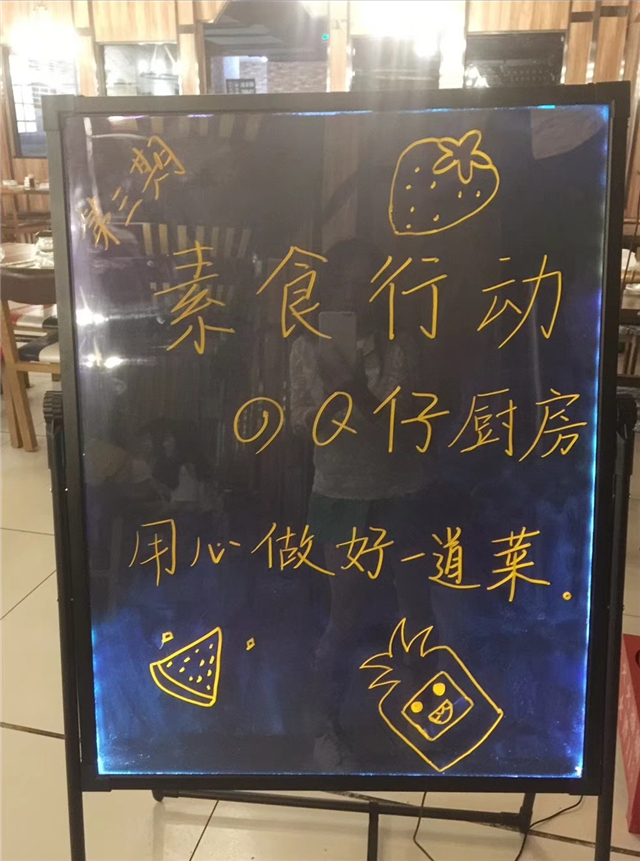 第三期
素食行动
のQ仔厨房
用心做好一道菜.